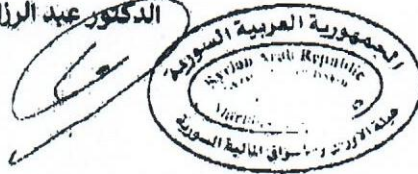 الدكتور عبد الرزاق
الجمهورية العربية السورية
Syrian Arab Republic
هيئة الأوراق والأسواق المالية السورية